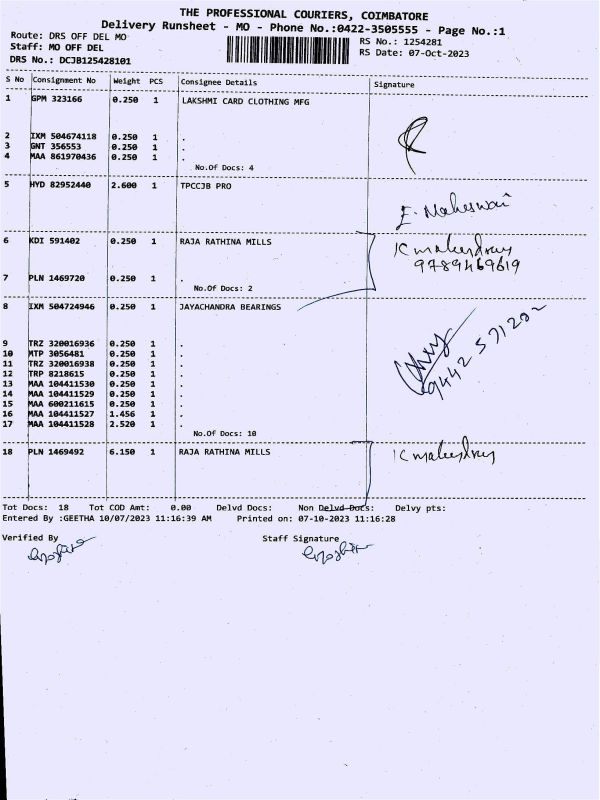 THE PROFESSIONAL COURIERS, COIMBATORE
Delivery Runsheet - MO - Phone No.:0422-3505555 - Page No.:1
Route: DRS OFF DEL MO
RS No.: 1254281
Staff: MO OFF DEL
RS Date: 07-Oct-2023
DRS No.: DCJB125428101
S No Consignment No Weight PCS Consignee Details Signature
1 GPM 323166 0.250 1 LAKSHMI CARD CLOTHING MFG
2 IXM 504674118 0.250 1 .
3 GNT 356553 0.250 1 .
4 MAA 861970436 0.250 1 .
No.Of Docs: 4
5 HYD 82952440 2.600 1 TPCCJB PRO
E. Maheswari
6 KDI 591402 0.250 1 RAJA RATHINA MILLS
9789469619
7 PLN 1469720 0.250 1 .
No.Of Docs: 2
8 IXM 504724946 0.250 1 JAYACHANDRA BEARINGS
9 TRZ 320016936 0.250 1 .
10 MTP 3056481 0.250 1 .
11 TRZ 320016938 0.250 1 .
12 TRP 8218615 0.250 1 .
13 MAA 104411530 0.250 1 .
14 MAA 104411529 0.250 1 .
15 MAA 600211615 0.250 1 .
16 MAA 104411527 1.456 1 .
17 MAA 104411528 2.520 1 .
No.Of Docs: 10
18 PLN 1469492 6.150 1 RAJA RATHINA MILLS
Tot Docs: 18 Tot COD Amt: 0.00 Delvd Docs: Non Delvd Docs: Delvy pts:
Entered By :GEETHA 10/07/2023 11:16:39 AM Printed on: 07-10-2023 11:16:28
Verified By Staff Signature